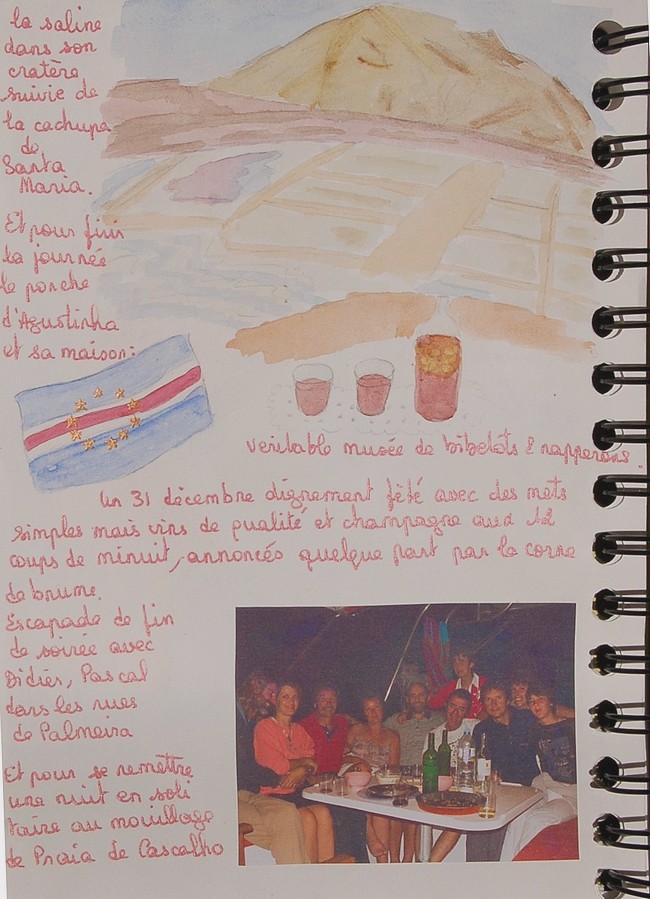 la saline
dans son
cratère
suivie de
la cachupa
de
Santa
Maria.
Et pour finir
la journée
le ponche
d'Agustinha
et sa maison:
veritable musée de bibelots & napperons.
Un 31 décembre dignement fêté avec des mets
simples mais vins de qualité et champagne aux 12
coups de minuit, annoncés quelque part par la corne
de brume.
Escapade de fin
de soirée avec
Didier, Pascal
dans les rues
de Palmeira
Et pour se remettre
une nuit en soli
taire au mouillage
de Praia de Cascalho